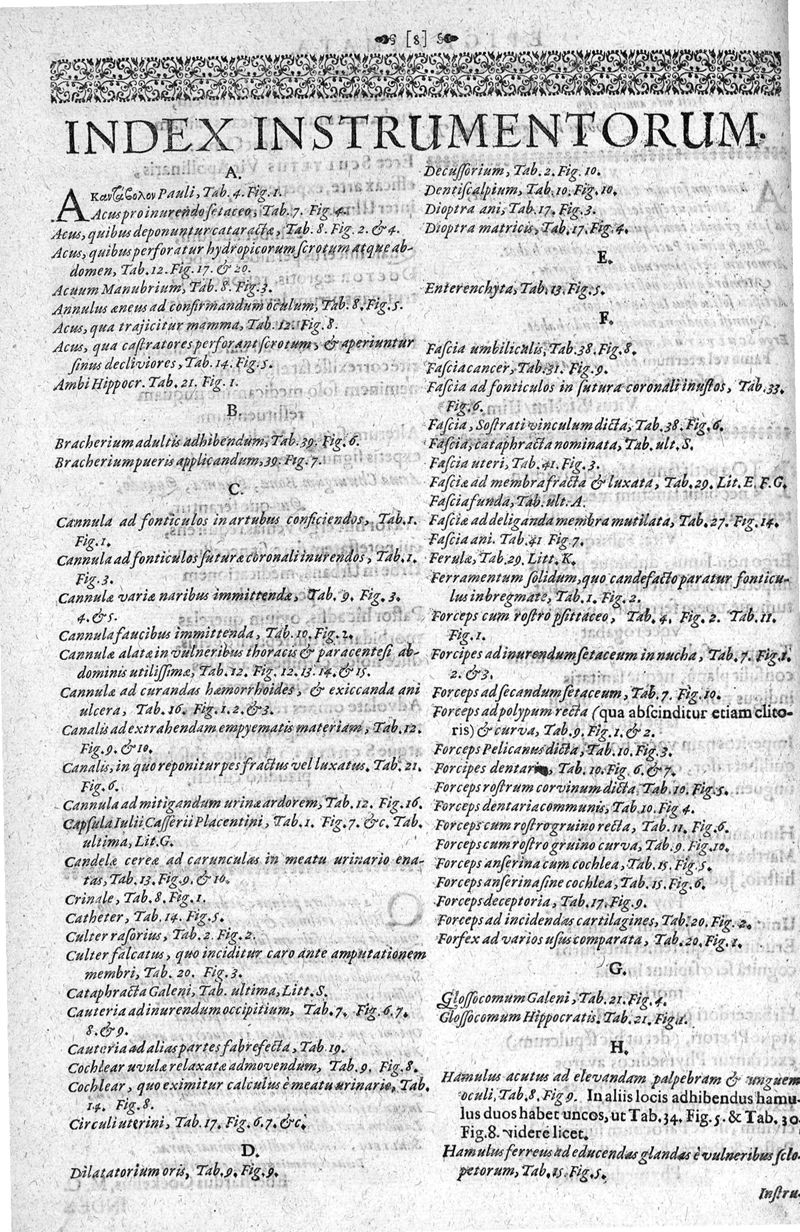 [8]
INDEX INSTRUMENTORUM.
A.
Ακανθαβολον Pauli, Tab. 4. Fig. 1.
Acus pro inurendo setaceo, Tab. 7. Fig. 4.
Acus, quibus deponuntur cataractæ, Tab. 8. Fig. 2. & 4.
Acus, quibus perforatur hydropicorum scrotum atque ab-
domen, Tab. 12. Fig. 17. & 20.
Acuum Manubrium, Tab. 8. Fig. 3.
Annulus æneus ad confirmandum oculum, Tab. 8. Fig. 5.
Acus, qua trajicitur mamma, Tab. 12. Fig. 8.
Acus, qua castratores perforant scrotum, & aperiuntur
sinus decliviores, Tab. 14. Fig. 5.
Ambi Hippocr. Tab. 21. Fig. 1.
B.
Bracherium adultis adhibendum, Tab. 39. Fig. 6.
Bracherium pueris applicandum, 39. Fig. 7.
C.
Cannula ad fonticulos in artubus conficiendos, Tab. 1.
Fig. 1.
Cannula ad fonticulos suturæ coronali inurendos, Tab. 1.
Fig. 3.
Cannulæ variæ naribus immittendæ, Tab. 9. Fig. 3.
4. & 5.
Cannula faucibus immittenda, Tab. 10. Fig. 2.
Cannulæ alatæ in vulneribus thoracis & paracentesi ab-
dominis utilissimæ, Tab. 12. Fig. 12. 13. 14. & 15.
Cannulæ ad curandas hæmorrhoides, & exiccanda ani
ulcera, Tab. 16. Fig. 1. 2. & 3.
Canalis ad extrahendam empyematis materiam, Tab. 12.
Fig. 9. & 10.
Canalis, in quo reponitur pes fractus vel luxatus. Tab. 21.
Fig. 6.
Cannula ad mitigandum urinæ ardorem, Tab. 12. Fig. 16.
Capsula Iulii Casserii Placentini, Tab. 1. Fig. 7. &c. Tab.
ultima, Lit. G.
Candelæ cereæ ad carunculas in meatu urinario ena-
tas, Tab. 13. Fig. 9. & 10.
Crinale, Tab. 8. Fig. 1.
Catheter, Tab. 14. Fig. 5.
Culter rasorius, Tab. 2. Fig. 2.
Culter falcatus, quo inciditur caro ante amputationem
membri, Tab. 20. Fig. 3.
Cataphracta Galeni, Tab. ultima, Litt. S.
Cauteria ad inurendum occipitium, Tab. 7. Fig. 6. 7.
8. & 9.
Cauteria ad alias partes fabrefecta, Tab 19.
Cochlear uvulæ relaxatæ admovendum, Tab. 9. Fig. 8.
Cochlear, quo eximitur calculus è meatu urinario, Tab.
14. Fig. 8.
Circuli uterini, Tab. 17. Fig. 6. 7. &c.
D.
Dilatatorium oris, Tab. 9. Fig. 9.
Decussorium, Tab. 2. Fig. 10.
Dentiscalpium, Tab. 10. Fig. 10.
Dioptra ani, Tab. 17. Fig. 3.
Dioptra matricis, Tab. 17. Fig. 4.
E.
Enterenchyta, Tab. 13. Fig. 5.
F.
Fascia umbilicalis, Tab. 38. Fig. 8.
Fascia cancer, Tab. 31. Fig. 9.
Fascia ad fonticulos in sutura coronali inustos, Tab. 33.
Fig. 6.
Fascia, Sostrati vinculum dicta, Tab. 38. Fig. 6.
Fascia, cataphracta nominata, Tab. ult. S.
Fascia uteri, Tab. 41. Fig. 3.
Fasciæ ad membra fracta & luxata, Tab. 29. Lit. E. F. G.
Fascia funda, Tab. ult. A.
Fasciæ ad deliganda membra mutilata, Tab. 27. Fig. 14.
Fascia ani. Tab. 41 Fig 7.
Ferulæ, Tab. 29. Litt. K.
Ferramentum solidum, quo candefacto paratur fonticu-
lus in bregmate, Tab. 1. Fig. 2.
Forceps cum rostro psittaceo, Tab. 4. Fig. 2. Tab. 11.
Fig. 1.
Forcipes ad inurendum setaceum in nucha, Tab. 7. Fig. 1.
2. & 3.
Forceps ad secandum setaceum, Tab. 7. Fig. 10.
Forceps ad polypum recta (qua abscinditur etiam clito-
ris) & curva, Tab. 9. Fig. 1. & 2.
Forceps Pelicanus dicta, Tab. 10. Fig. 3.
Forcipes dentariæ, Tab. 10. Fig. 6. & 7.
Forceps rostrum corvinum dicta. Tab. 10. Fig. 5.
Forceps dentaria communis, Tab. 10. Fig 4.
Forceps cum rostro gruino recta, Tab. 11. Fig. 6.
Forceps cum rostro gruino curva, Tab. 9. Fig. 10.
Forceps anserina cum cochlea, Tab. 15. Fig. 5.
Forceps anserina sine cochlea, Tab. 15. Fig. 6.
Forceps deceptoria, Tab. 17. Fig. 9.
Forceps ad incidendas cartilagines, Tab. 20. Fig. 2.
Forfex ad varios usus comparata, Tab. 20. Fig. 1.
G.
Glossocomum Galeni, Tab. 21. Fig. 4.
Glossocomum Hippocratis. Tab. 21. Fig. 1.
H.
Hamulus acutus ad elevandam palpebram & unguem
oculi, Tab, 8. Fig 9. In aliis locis adhibendus hamu-
lus duos habet uncos, ut Tab. 34. Fig. 5. & Tab. 30.
Fig. 8. videre licet.
Hamulus ferreus ad educendas glandas è vulneribus sclo-
petorum, Tab. 15. Fig. 5.
Instru-